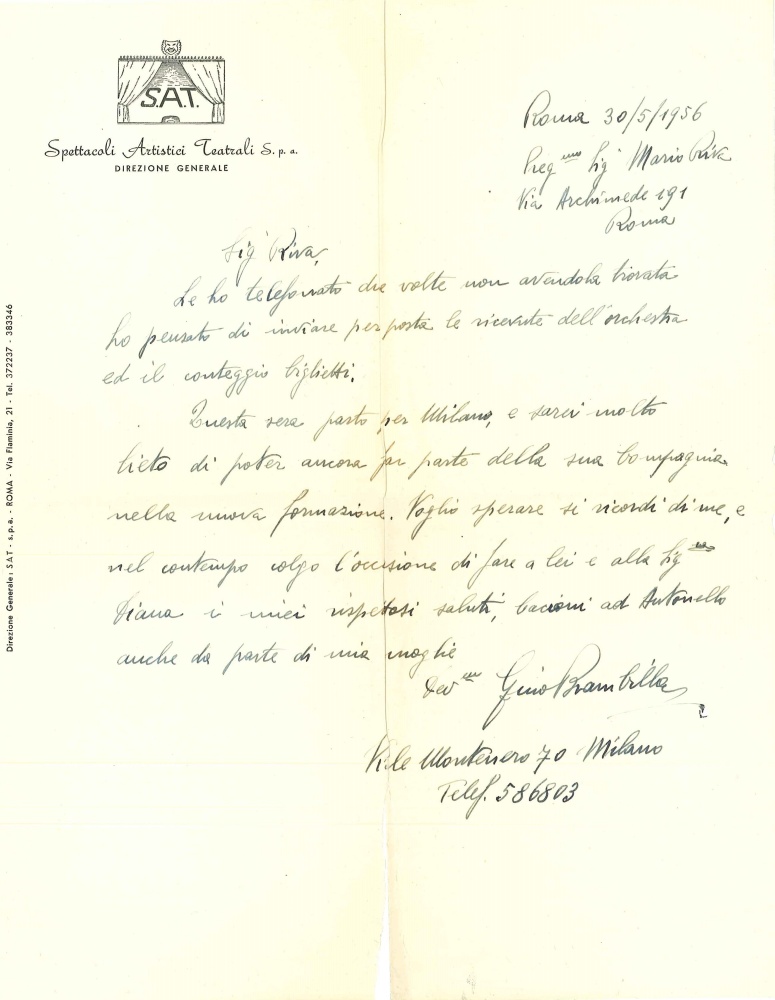 S.A.T.
Spettacoli Artistici Teatrali S. p. a.
DIREZIONE GENERALE
Roma 30/5/1956
Preg mo Sig Mario Riva
Via Archimede 191
Roma
Sig Riva,
Le ho telefonato due volte non avendola trovata
ho pensato di inviare per posta le ricevute dell'orchestra
ed il conteggio biglietti.
Questa sera parto per Milano, e sarei molto
lieto di poter ancora far parte della sua compagnia
nella nuova formazione. Voglio sperare si ricordi di me, e
nel contempo colgo l'occasione di fare a lei e alla Sig
Diana i miei rispettosi saluti, bacioni ad Antonello
anche da parte di mia moglie
Dev mo Gino Brambilla
V.le Montenero 70 Milano
Telef. 586803
Direzione Generale: SAT - s.p.a. - ROMA - Via Flaminia, 21 - Tel. 372237 - 383346